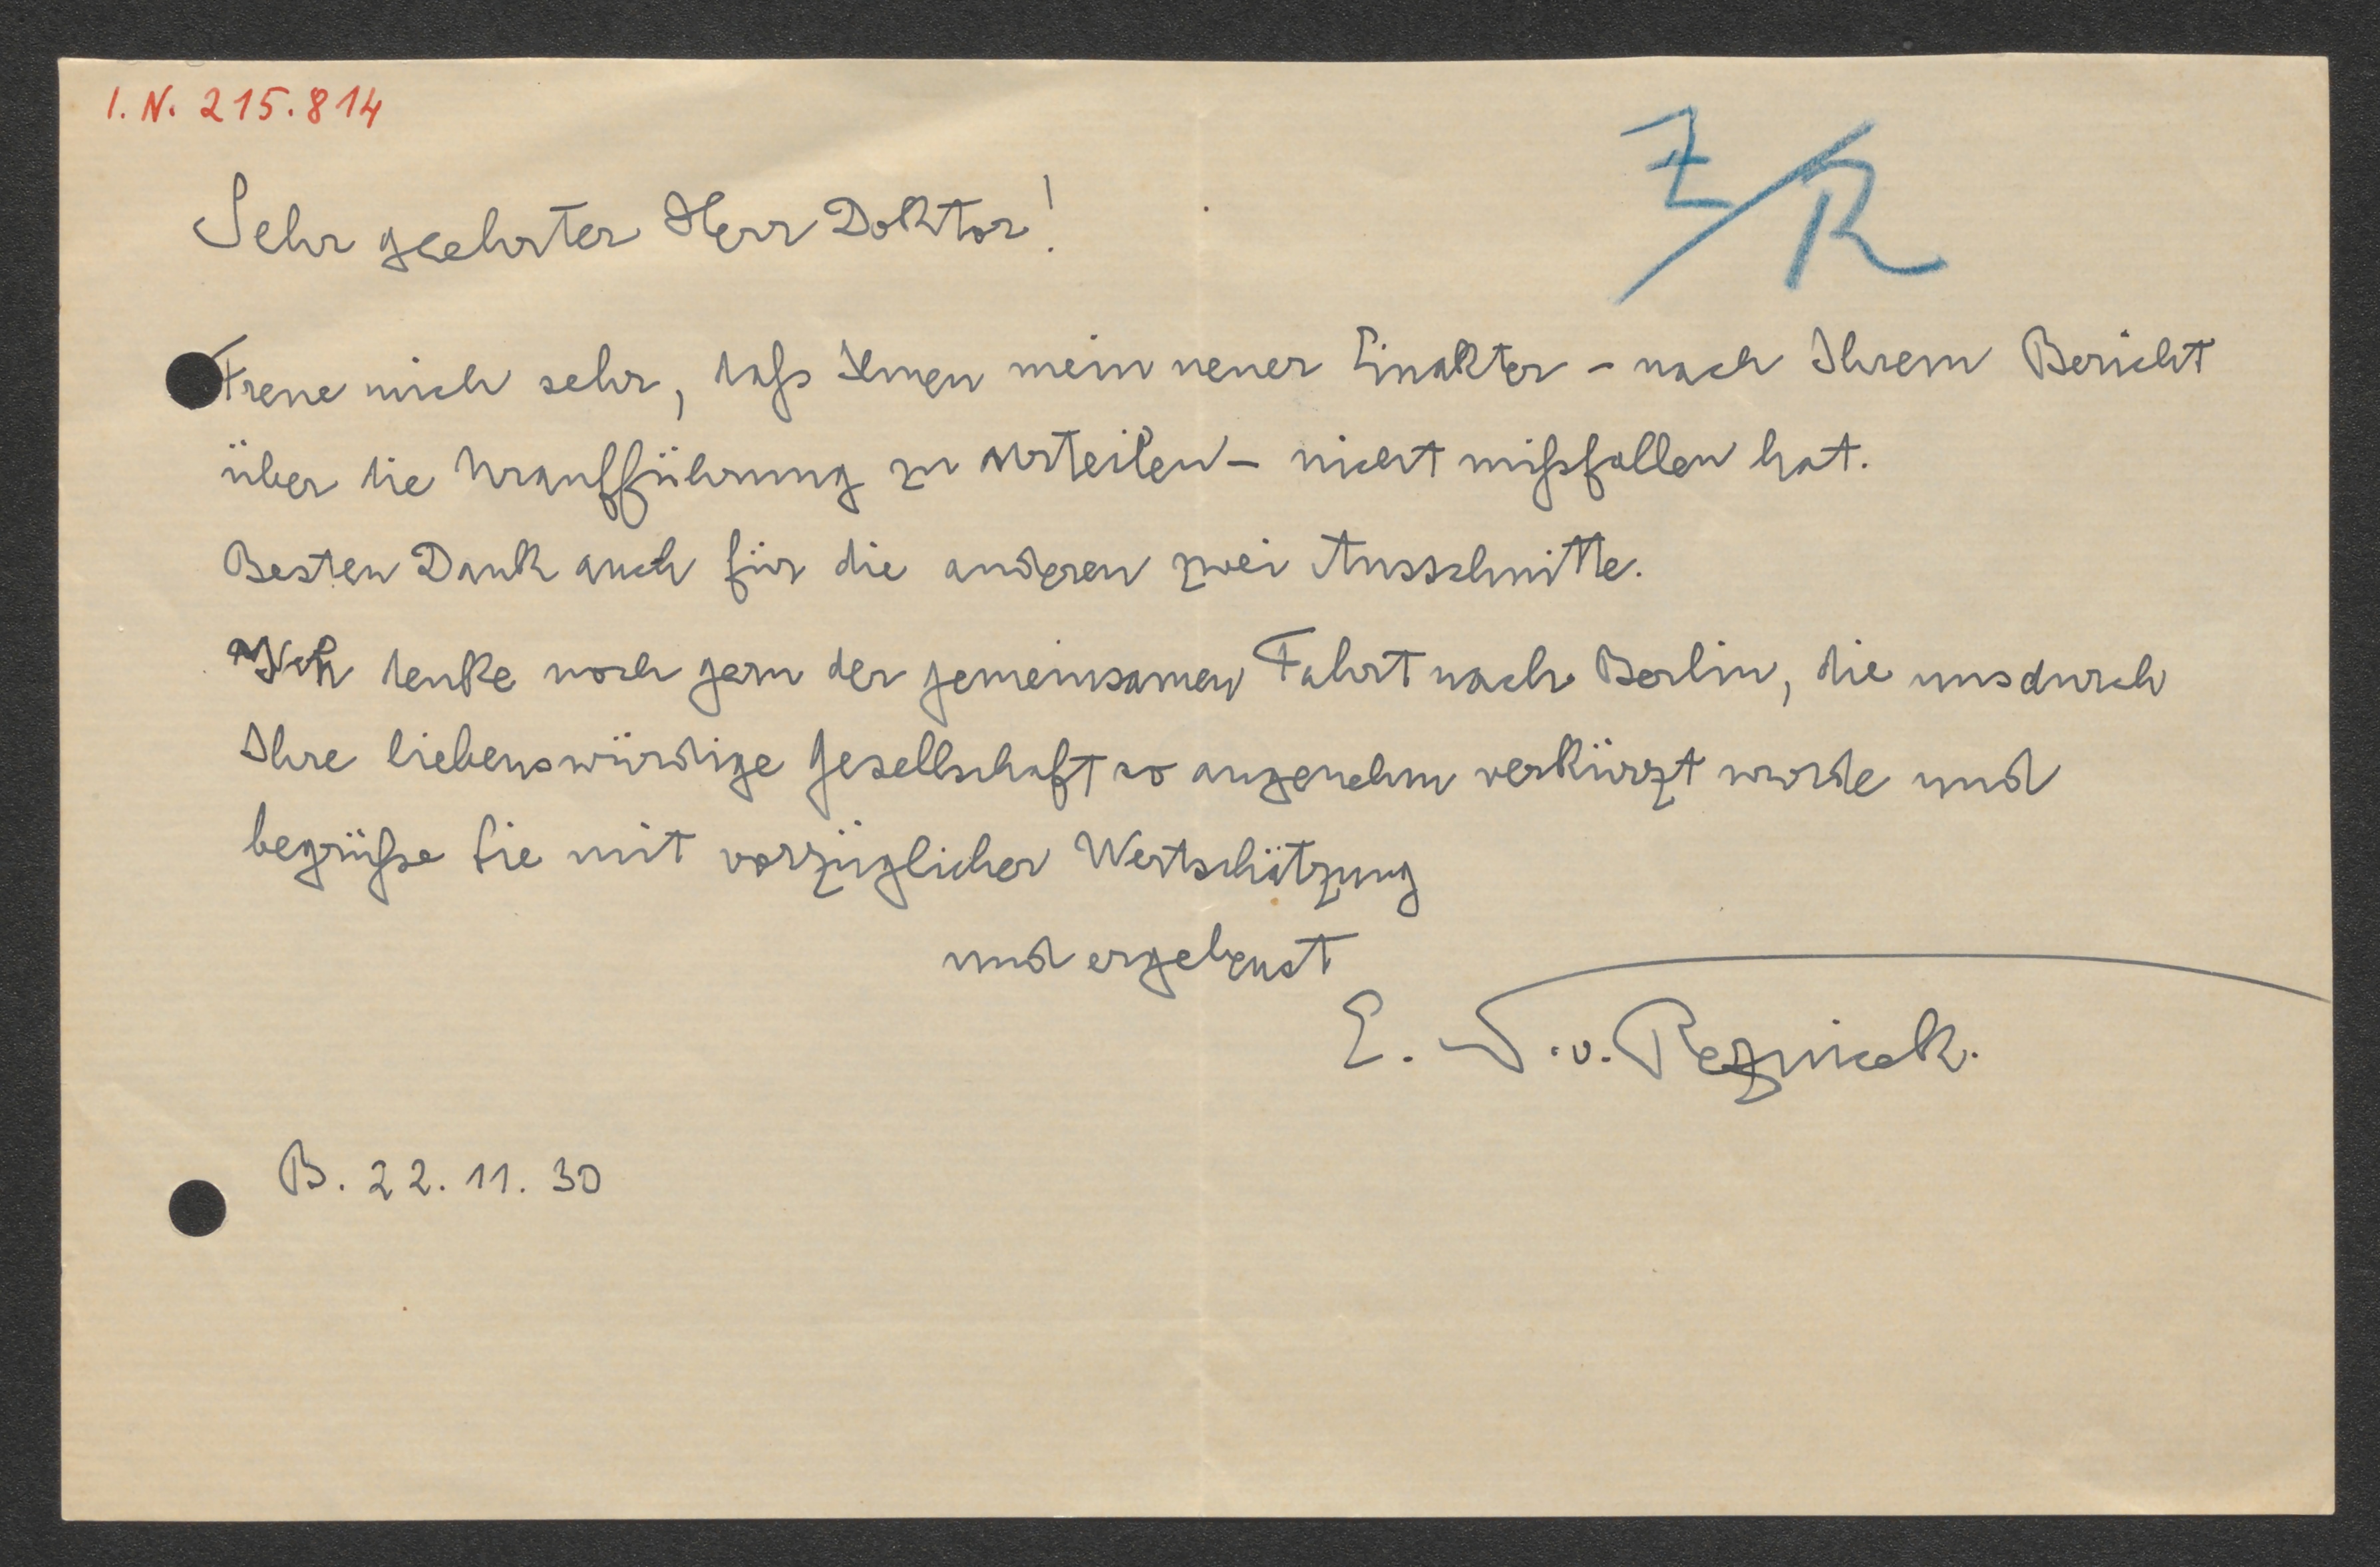 I. N. 215.814
Z/R
Sehr geehrter Herr Doktor!
Freue mich sehr, dass Ihnen mein neuer Einakter – nach Ihrem Bericht
über die Uraufführung zu urteilen – nicht missfallen hat.
Besten Dank auch für die anderen zwei Ausschnitte.
Ich denke noch gern der gemeinsamen Fahrt nach Berlin, die uns durch
Ihre liebenswürdige Gesellschaft so angenehm verkürzt wurde und
begrüsse Sie mit vorzüglicher Wertschätzung
und ergebenst
E. N. v. Reznicek.
B. 22. 11. 30